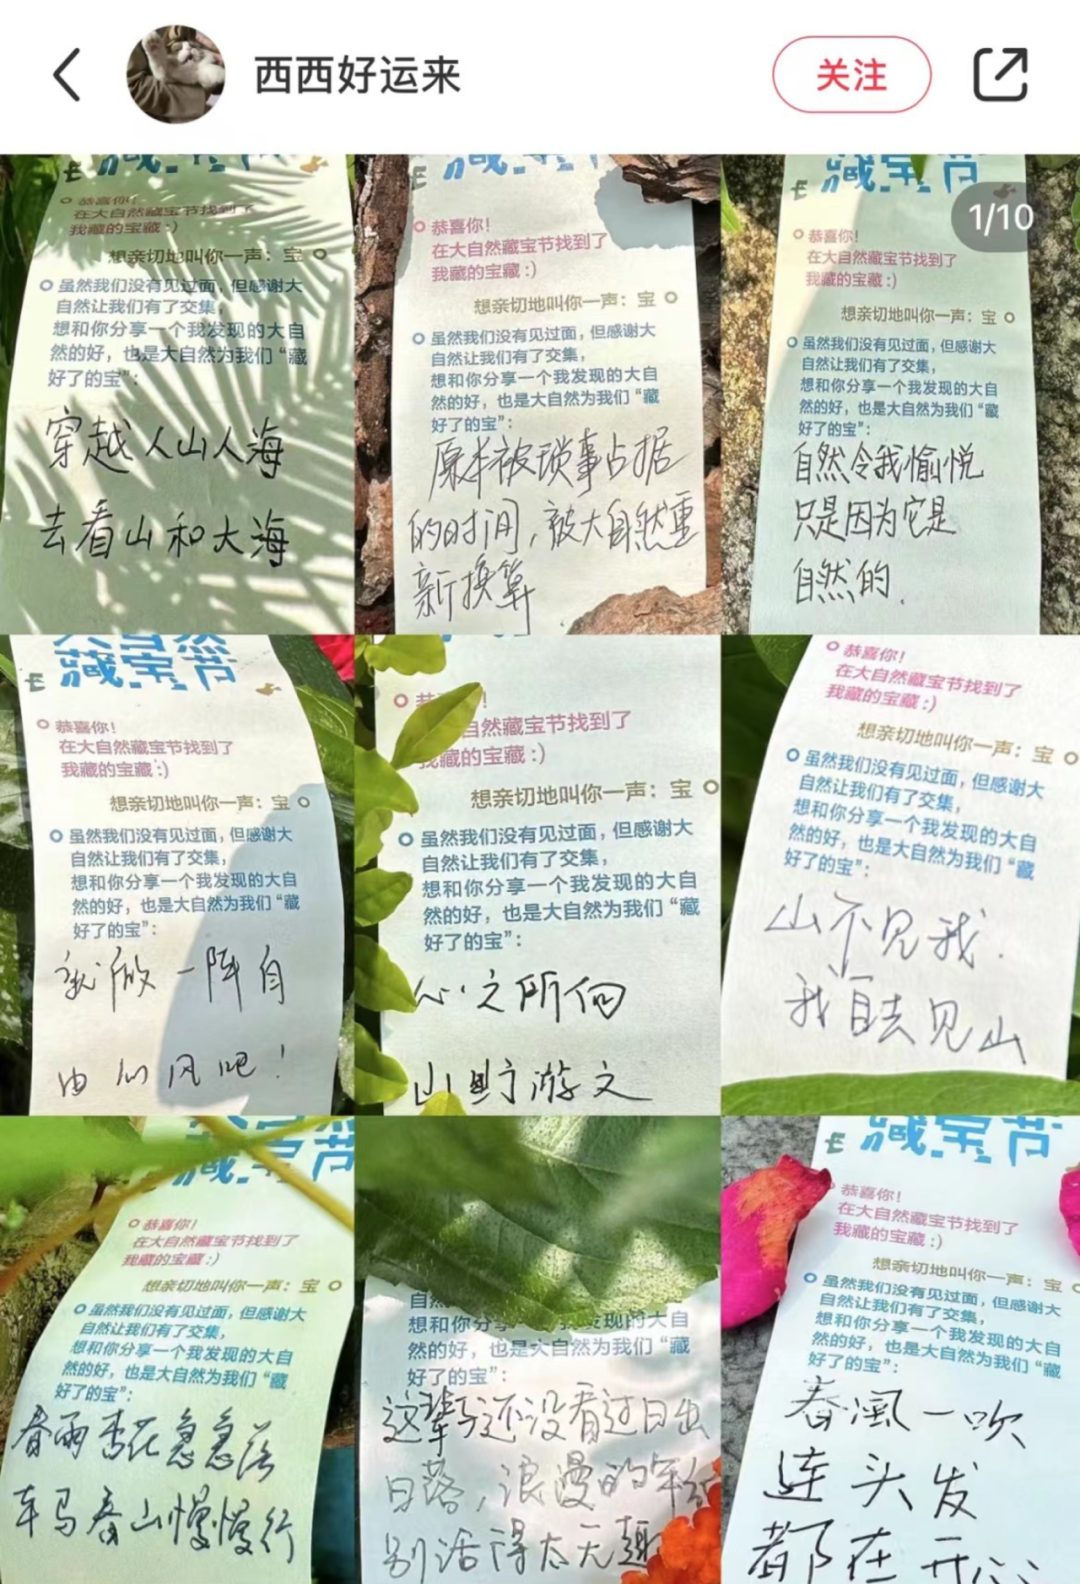 西西好运来
关注
1/10
恭喜你!
在大自然藏宝节找到了
我藏的宝藏:)
想亲切地叫你一声：宝
虽然我们没有见过面，但感谢大
自然让我们有了交集，
想和你分享一个我发现的大自
然的好，也是大自然为我们“藏
好了的宝”：
穿越人山人海
去看山和大海
藏宝节
恭喜你!
在大自然藏宝节找到了
我藏的宝藏:)
想亲切地叫你一声：宝
虽然我们没有见过面，但感谢大
自然让我们有了交集，
想和你分享一个我发现的大自
然的好，也是大自然为我们“藏
好了的宝”：
原本被琐事占据
的时间，被大自然重
新换算
藏宝节
恭喜你!
在大自然藏宝节找到了
我藏的宝藏:)
想亲切地叫你一声：宝
虽然我们没有见过面，但感谢大
自然让我们有了交集，
想和你分享一个我发现的大自
然的好，也是大自然为我们“藏
好了的宝”：
自然令我愉悦
只是因为它是
自然的.
藏宝节
恭喜你!
在大自然藏宝节找到了
我藏的宝藏:)
想亲切地叫你一声：宝
虽然我们没有见过面，但感谢大
自然让我们有了交集，
想和你分享一个我发现的大自
然的好，也是大自然为我们“藏
好了的宝”：
就做一阵自
由的风吧!
恭 !
自然藏宝节找到了
我藏的宝藏:)
想亲切地叫你一声：宝
虽然我们没有见过面，但感谢大
自然让我们有了交集，
想和你分享一个我发现的大自
然的好，也是大自然为我们“藏
好了的宝”：
心之所向
山野游文
恭喜你!
在大自然藏宝节找到了
我藏的宝藏:)
想亲切地叫你一声：宝
虽然我们没有见过面，但感谢大
自然让我们有了交集，
想和你分享一个我发现的大自
然的好，也是大自然为我们“藏
好了的宝”：
山不见我.
我自去见山
藏宝节
恭喜你!
在大自然藏宝节找到了
我藏的宝藏:)
想亲切地叫你一声：宝
虽然我们没有见过面，但感谢大
自然让我们有了交集，
想和你分享一个我发现的大自
然的好，也是大自然为我们“藏
好了的宝”：
春雨杏花急急落
车马春山慢慢行
自然
想和你分 发现的大自
然的好，也是大自然为我们“藏
好了的宝”：
这辈子还没看过日出
日落，浪漫的年纪
别活得太无趣
藏宝节
恭喜你!
在大自然藏宝节找到了
我藏的宝藏:)
想亲切地叫你一声：宝
虽然我们没有见过面，但感谢大
自然让我们有了交集，
想和你分享一个我发现的大自
然的好，也是大自然为我们“藏
好了的宝”：
春风一吹
连头发
都在开心